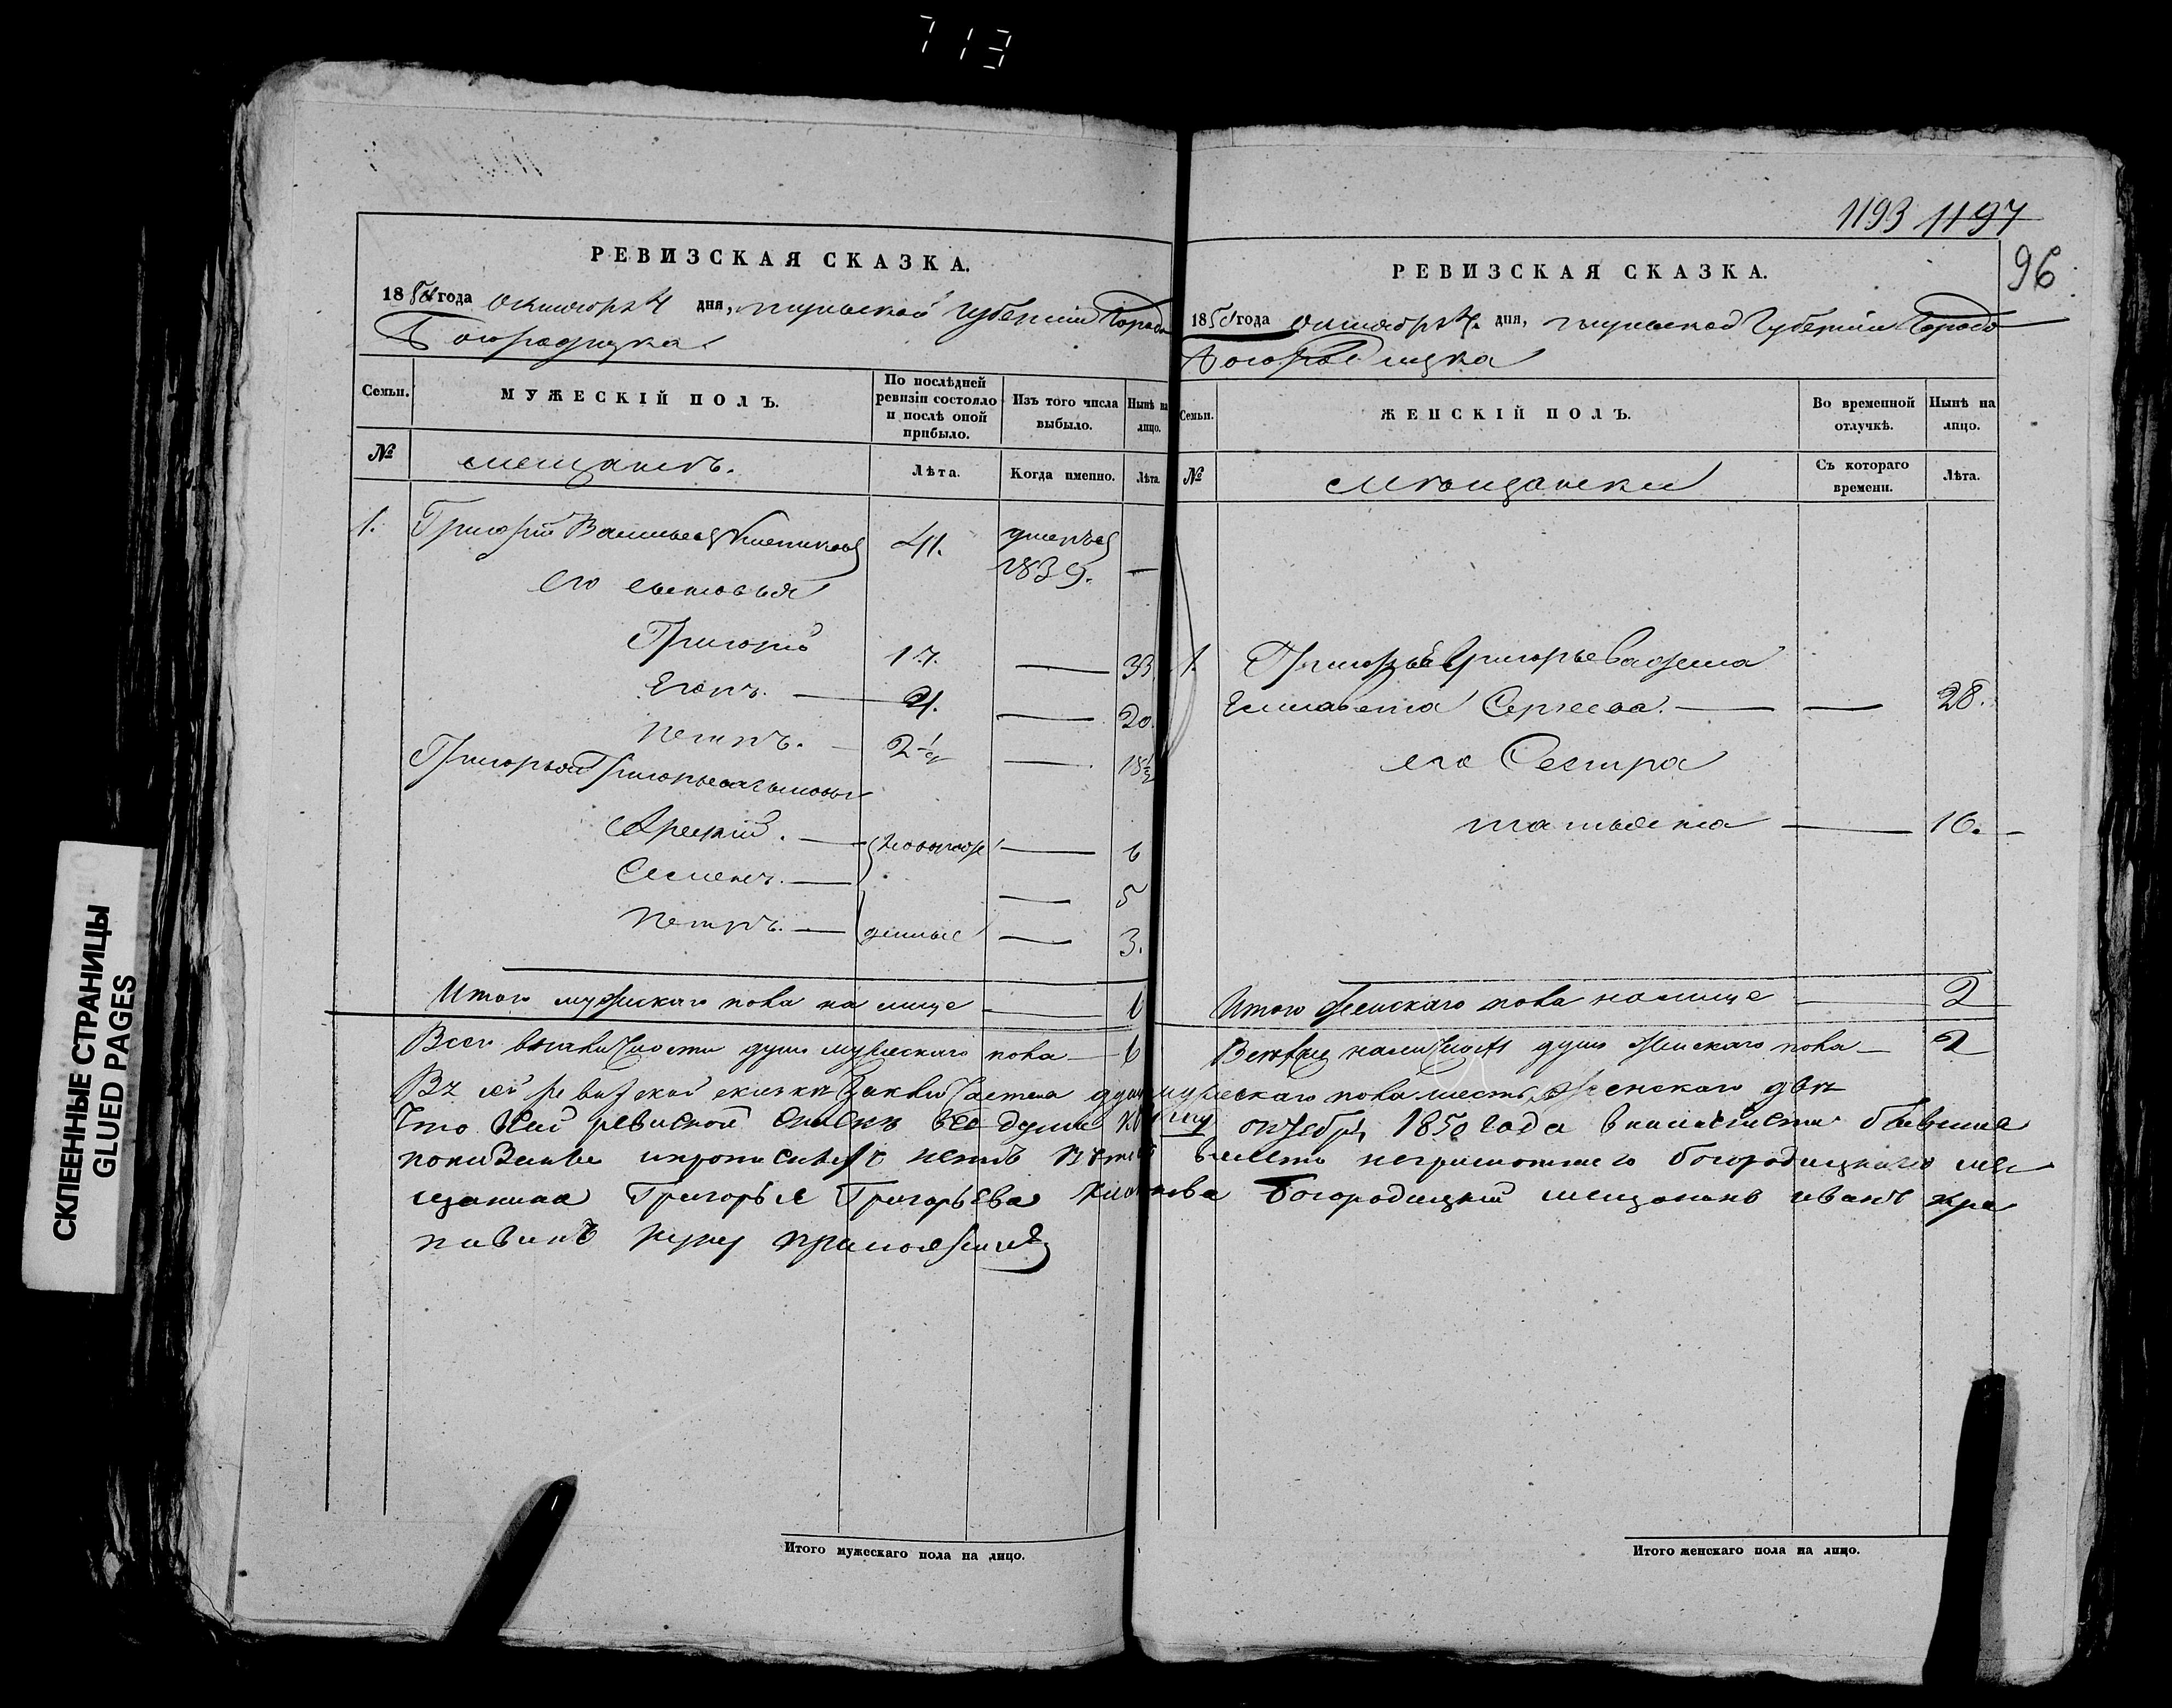 713
РЕВИЗСКАЯ СКАЗКА.
1850 года октября 4 дня, тульской губернии города
Богородицка
Семьи.
МУЖЕСКІЙ ПОЛЪ.
По послѣдней ревизіи состояло и послѣ оной прибыло.
Изъ того числа выбыло.
Нынѣ на лицо.
№
мещанъ.
Лѣта.
Когда именно.
Лѣта.
1. Григорій Васильевъ 41. умеръ 1839. —
его сыновья
Григорій 17. — 33
Егоръ. — 4. — 20.
Петръ. — 2½ — 18½
Григорья Григорьева сыновья
— новорож — 6
Семенъ. — — 5
Петръ. — денные — 3.
Итого мужескаго пола на лице — 6
Всего в наличности душ мужескаго пола — 6
1193 1197
96
РЕВИЗСКАЯ СКАЗКА.
1850 года октября 4. дня, тульской Губерніи города
Богородицка
Семьи.
ЖЕНСКІЙ ПОЛЪ.
Во временной отлучкѣ.
Нынѣ на лицо.
№
мѣщански
Съ котораго времени.
Лѣта.
1. Григорья Григорьева жена
Елисавета Сергеева. — — 28.
его Сестра
татьяна — 16. —
Итого женскаго пола налице — 2
наличности душ женскаго пола — 2
Въ сей ревизской сказки заключается душ мужескаго пола шесть, женскаго двѣ
Что сей ревиской все души к октебря 1850 Года вналичности бывшие
показаны и нетъ в том вместо неграмотнаго богородицкаго ме
щанина Григорья Григорьева Богородицкий мещанинъ иванъ кра
пивинъ руку приложилъ
Итого мужескаго пола на лицо.
Итого женскаго пола на лицо.
СКЛЕЕННЫЕ СТРАНИЦЫ
GLUED PAGES